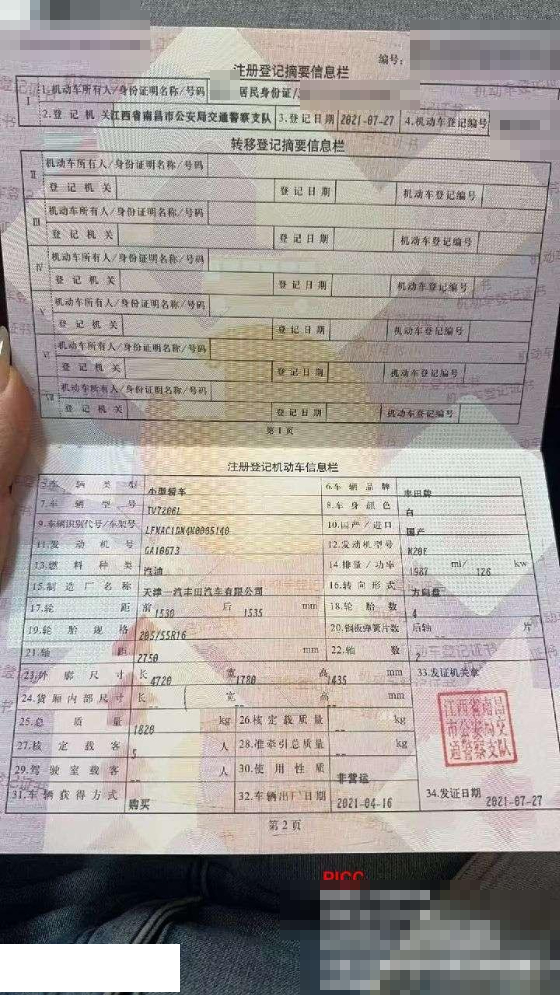 编号:
注册登记摘要信息栏
I 1.机动车所有人/身份证明名称/号码 居民身份证/
2.登记机关 江西省南昌市公安局交通警察支队 3.登记日期 2021-07-27 4.机动车登记编号
转移登记摘要信息栏
II 机动车所有人/身份证明名称/号码
登记机关 登记日期 机动车登记编号
III 机动车所有人/身份证明名称/号码
登记机关 登记日期 机动车登记编号
IV 机动车所有人/身份证明名称/号码
登记机关 登记日期 机动车登记编号
V 机动车所有人/身份证明名称/号码
登记机关 登记日期 机动车登记编号
VI 机动车所有人/身份证明名称/号码
登记机关 登记日期 机动车登记编号
VII 机动车所有人/身份证明名称/号码
登记机关 登记日期 机动车登记编号
第1页
注册登记机动车信息栏
5.车辆类型 小型轿车 6.车辆品牌
7.车辆型号 8.车身颜色 白
9.车辆识别代号/车架号 10.国产/进口 国产
11.发动机号 12.发动机型号 M20E
13.燃料种类 汽油 14.排量/功率 1987 ml/ 126 kw
15.制造厂名称 天津一汽丰田汽车有限公司 16.转向形式 方向盘
17.轮距 前 1530 后 1535 mm 18.轮胎数 4
19.轮胎规格 205/55R16 20.钢板弹簧片数 后轴 片
21.轴距 2750 mm 22.轴数 2
23.外廓尺寸 长 4720 宽 1780 高 1435 mm 33.发证机关章
24.货厢内部尺寸 长 宽 高 mm
江西省南昌
市公安局交
通警察支队
25.总质量 1820 kg 26.核定载质量 -- kg
27.核定载客 5 人 28.准牵引总质量 -- kg
29.驾驶室载客 -- 人 30.使用性质 非营运
31.车辆获得方式 购买 32.车辆出厂日期 2021-04-16 34.发证日期 2021-07-27
第2页
PICC